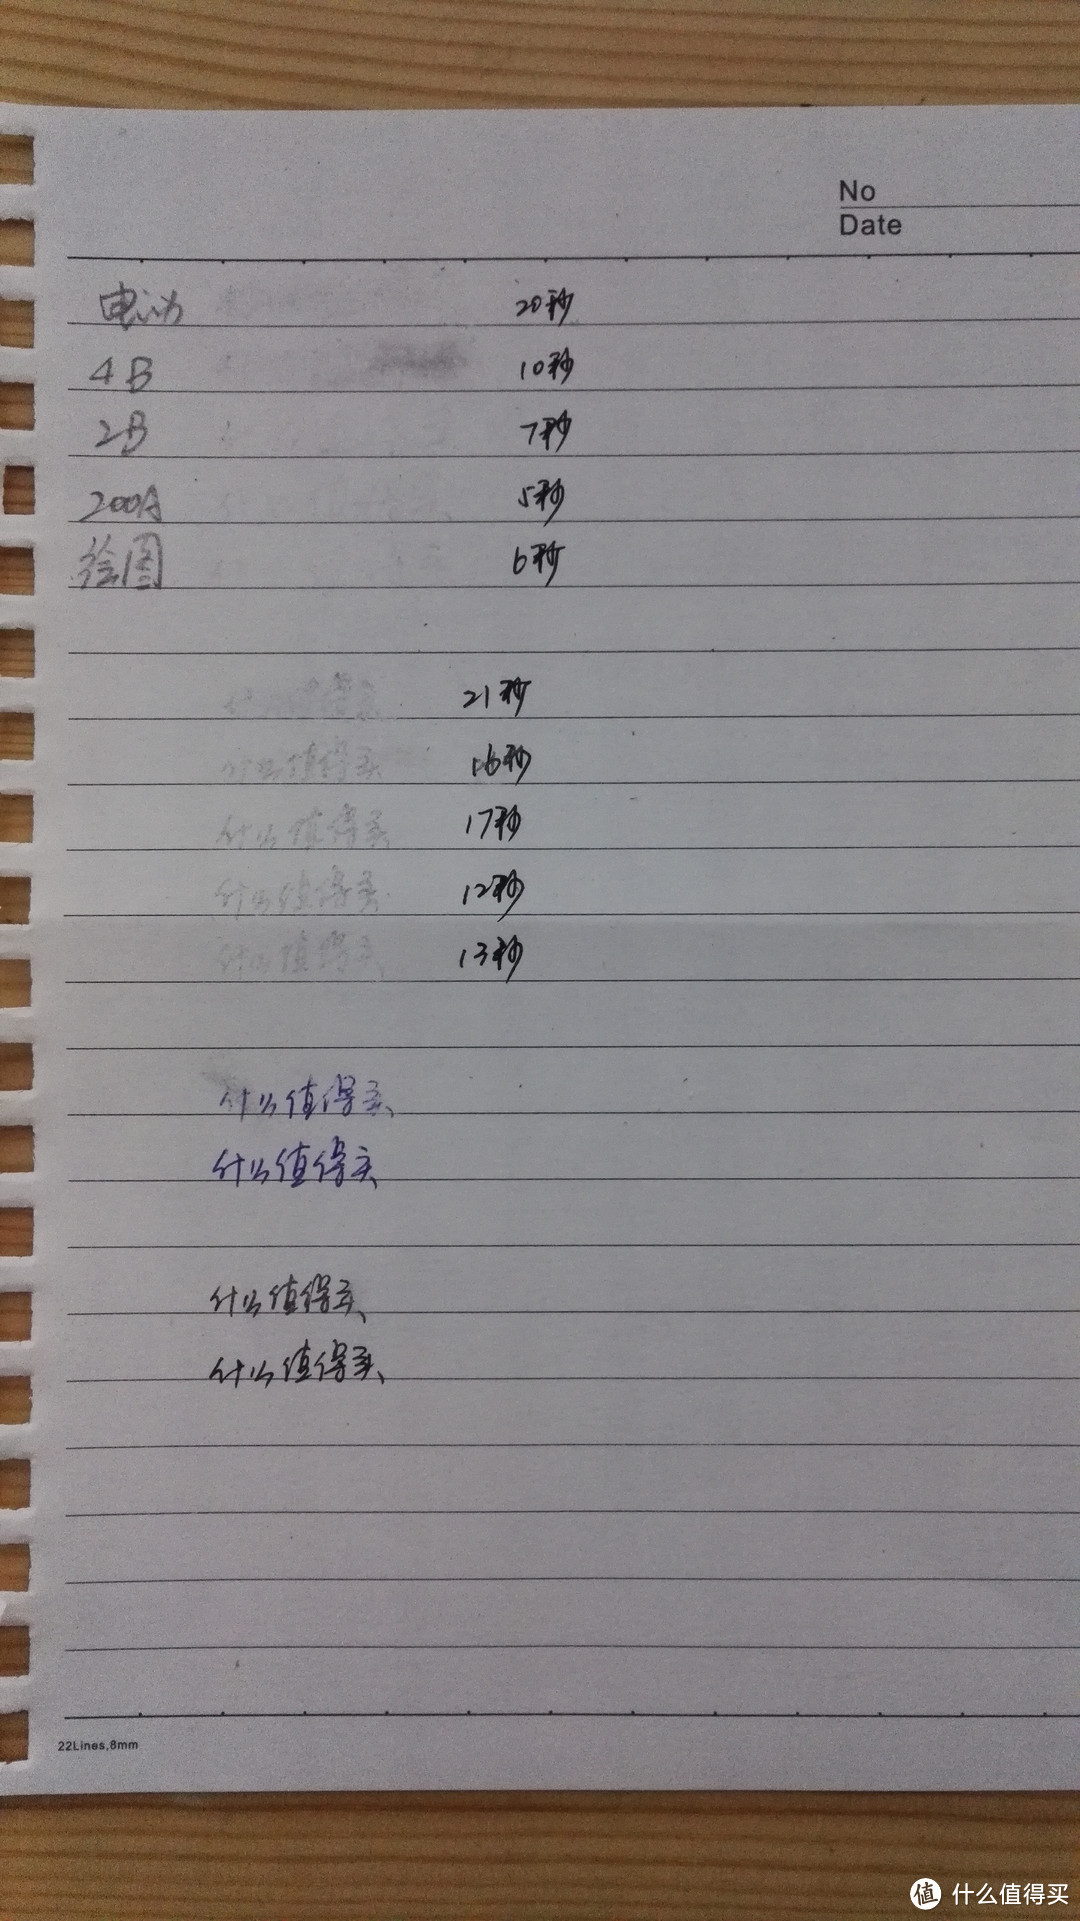 No
Date
电动 20秒
4B 10秒
2B 7秒
200A 5秒
绘图 6秒
什么值得买 21秒
什么值得买 16秒
什么值得买 17秒
什么值得买 12秒
什么值得买 13秒
什么值得买
什么值得买
什么值得买
什么值得买
22Lines,8mm
值 什么值得买